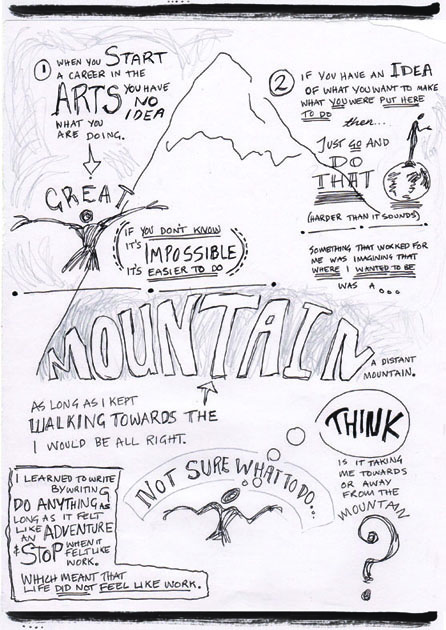 1 WHEN YOU START
A CAREER IN THE
ARTS YOU HAVE
NO
IDEA
WHAT YOU
ARE DOING.
GREAT
IF YOU DON'T KNOW
IT'S IMPOSSIBLE
IT'S EASIER TO DO
2 IF YOU HAVE AN IDEA
OF WHAT YOU WANT TO MAKE
WHAT YOU WERE PUT HERE
TO DO
then...
JUST GO AND
DO
THAT
(HARDER THAN IT SOUNDS)
SOMETHING THAT WORKED FOR
ME WAS IMAGINING THAT
WHERE I WANTED TO BE
WAS A...
MOUNTAIN
A DISTANT
MOUNTAIN.
AS LONG AS I KEPT
WALKING TOWARDS THE
I WOULD BE ALL RIGHT.
NOT SURE WHAT TO DO...
THINK
IS IT TAKING
ME TOWARDS
OR AWAY
FROM THE
MOUNTAIN
?
I LEARNED TO WRITE
BY WRITING
DO ANYTHING AS
LONG AS IT FELT
LIKE AN ADVENTURE
& STOP WHEN IT
FELT LIKE
WORK.
WHICH MEANT THAT
LIFE DID NOT FEEL LIKE WORK.